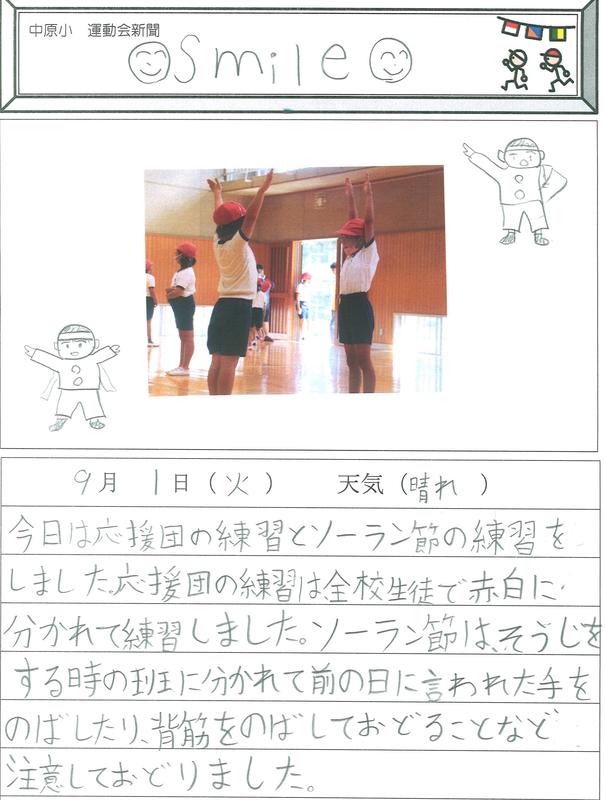 中原小 運動会新聞
Smile
9月 1日(火) 天気(晴れ)
今日は応援団の練習とソーラン節の練習を
しました。応援団の練習は、全校生徒で赤白に
分かれて練習しました。ソーラン節は、そうじを
する時の班に分かれて前の日に言われた手を
のばしたり、背筋をのばしておどることなど
注意しておどりました。